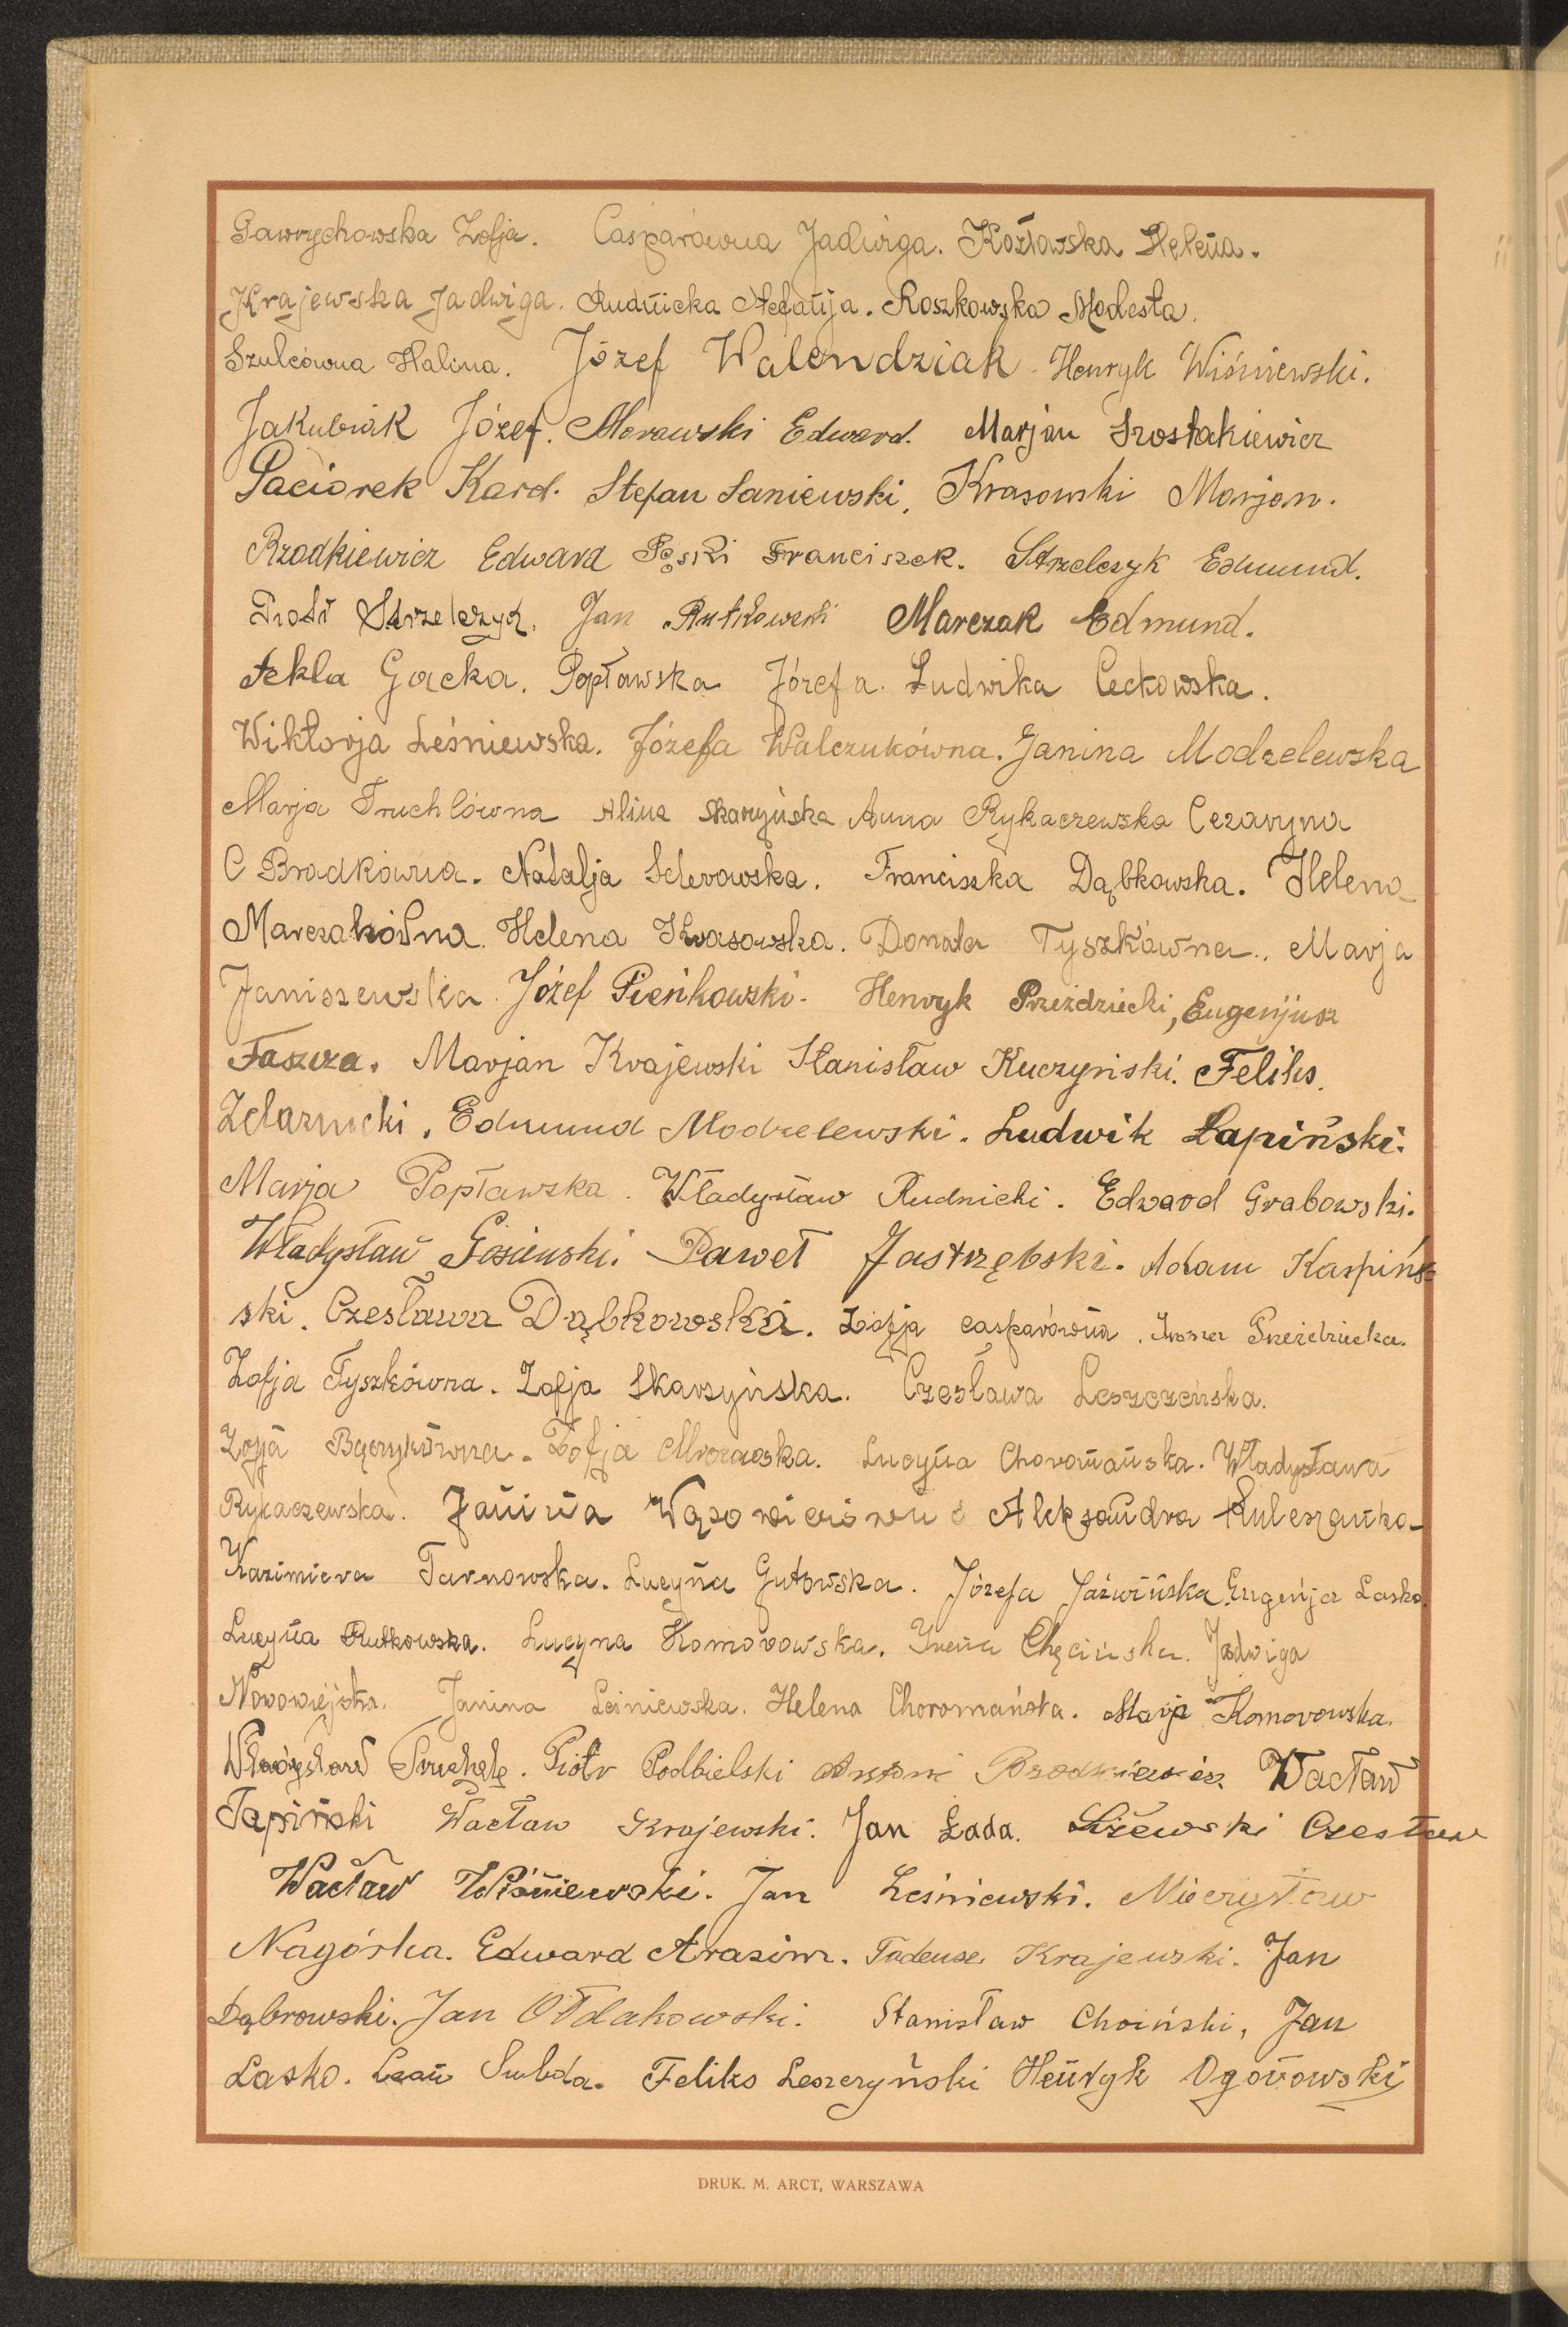 Gawrychowska Zofja. Casparówna Jadwiga. Kozłowska Helena.
Krajewska Jadwiga. Rudnicka Stefanja. Roszkowska Modesta.
Szulcówna Halina. Józef Walendziak. Henryk Wiśniewski.
Jakubiak Józef. Morawski Edward. Marjan Szostakiewicz
Paciorek Karol. Stefan Saniewski, Krasowski Marjan.
Rzodkiewicz Edward Pęski Franciszek. Strzelczyk Edmund.
Piotr Strzelczyk. Jan Rutkowski Marczak Edmund.
Tekla Gacka. Popławska Józefa. Ludwika Ceckowska.
Wiktorja Leśniewska. Józefa Walczukówna. Janina Modzelewska
Marja Truchlówna Alina Skarzyńska Anna Rykaczewska Cezaryna
C Brodkówna. Natalja Selerowska. Franciszka Dąbkowska. Helena
Marczakówna. Helena Krasowska. Donata Tyszkówna. Marja
Janiszewska. Józef Pieńkowski. Henryk Przeździecki, Eugenjusz
Faszcza. Marjan Krajewski Stanisław Kuczyński. Feliks
Żelaznicki. Edmund Modzelewski. Ludwik Łapiński.
Marja Popławska. Władysław Rudnicki. Edward Grabowski.
Władysław Gosiewski. Paweł Jastrzębski. Adam Karpiń-
ski. Czesława Dąbkowska. Zofja Casparówna. Przeździecka.
Zofja Tyszkówna. Zofja Skarzyńska. Czesława Leszczeńska.
Zofja Bączykówna. Zofja Mrozowska. Lucyna Choromańska. Władysława
Rykaczewska. Janina Wąsowiczówna Aleksandra Kuleszanka
Kazimiera Tarnowska. Lucyna Gutowska. Józefa Jaźwińska. Eugenja Lasko.
Lucyna Rutkowska. Lucyna Komorowska. Irena Chęcińska. Jadwiga
Nowowiejska. Janina Leśniewska. Helena Choromańska. Marja Komorowska.
Władysław Truchel. Piotr Podbielski Antoni Wacław
Łapiński Wacław Krajewski. Jan Łada. Liżewski Czesław
Wacław Wiśniewski. Jan Leśniewski. Mieczysław
Nagórka. Edward Arasim. Tadeusz Krajewski. Jan
Dąbrowski. Jan Ołdakowski. Stanisław Choiński, Jan
Lasko. Leon Subda. Feliks Leszczyński Henryk Ogonowski
DRUK. M. ARCT, WARSZAWA